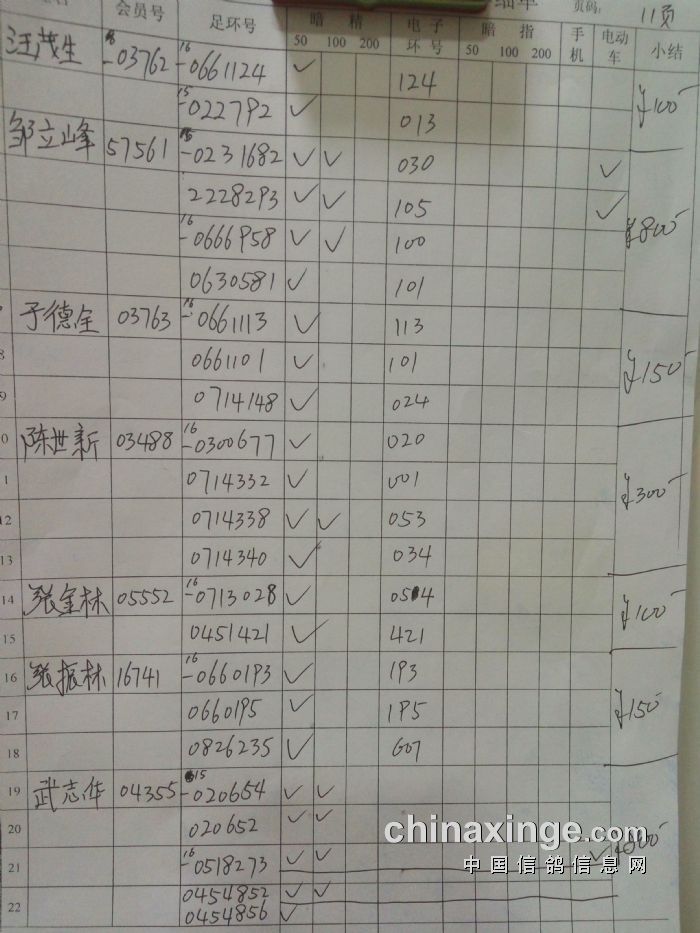 会员号 足环号 暗 精 电子 暗 指 手 电动 页码: 11页
50 100 200 环号 50 100 200 机 车 小结
汪茂生 16-03762 16-0661124 ✓ 124
15-022792 ✓ 013 ¥100-
邹立峰 57561 15-0231682 ✓ ✓ 030 ✓
2228293 ✓ ✓ 105 ✓
16-0666958 ✓ ✓ 100 ¥800-
0630581 ✓ 101
于德全 03763 16-0661113 ✓ 113
8 0661101 ✓ 101 ¥150-
9 0714148 ✓ 024
0 陈世新 03488 16-0300677 ✓ 020
1 0714332 ✓ 001 ¥300-
12 0714338 ✓ ✓ 053
13 0714340 ✓ 034
14 张金林 05552 16-0713028 ✓ 054 ¥100-
15 0451421 ✓ 421
16 张振林 16741 16-0660193 ✓ 193
17 0660195 ✓ 195 ¥150-
18 0826235 ✓ 607
19 武志华 04355 15-020654 ✓ ✓
20 020652 ✓ ✓
chinaxinge.com
21 16-0518273 ✓ ✓ ✓
中国信鸽信息网
22 0454852 ✓ ✓
0454856 ✓